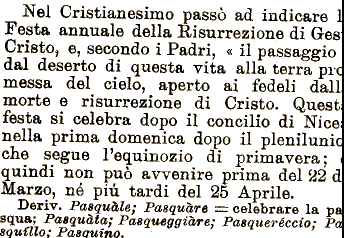 Nel Cristianesimo passò ad indicare l
Festa annuale della Risurrezione di Ges
Cristo, e, secondo i Padri, « il passaggio
dal deserto di questa vita alla terra pro
messa del cielo, aperto ai fedeli dall
morte e risurrezione di Cristo. Quest
festa si celebra dopo il concilio di Nice
nella prima domenica dopo il plenilunio
che segue l'equinozio di primavera;
quindi non può avvenire prima del 22 d
Marzo, né piú tardi del 25 Aprile.
Deriv. Pasquàle; Pasquàre = celebrare la pa
squa; Pasquàta; Pasqueggiàre; Pasqueréccio; Pa
squíllo; Pasquíno.